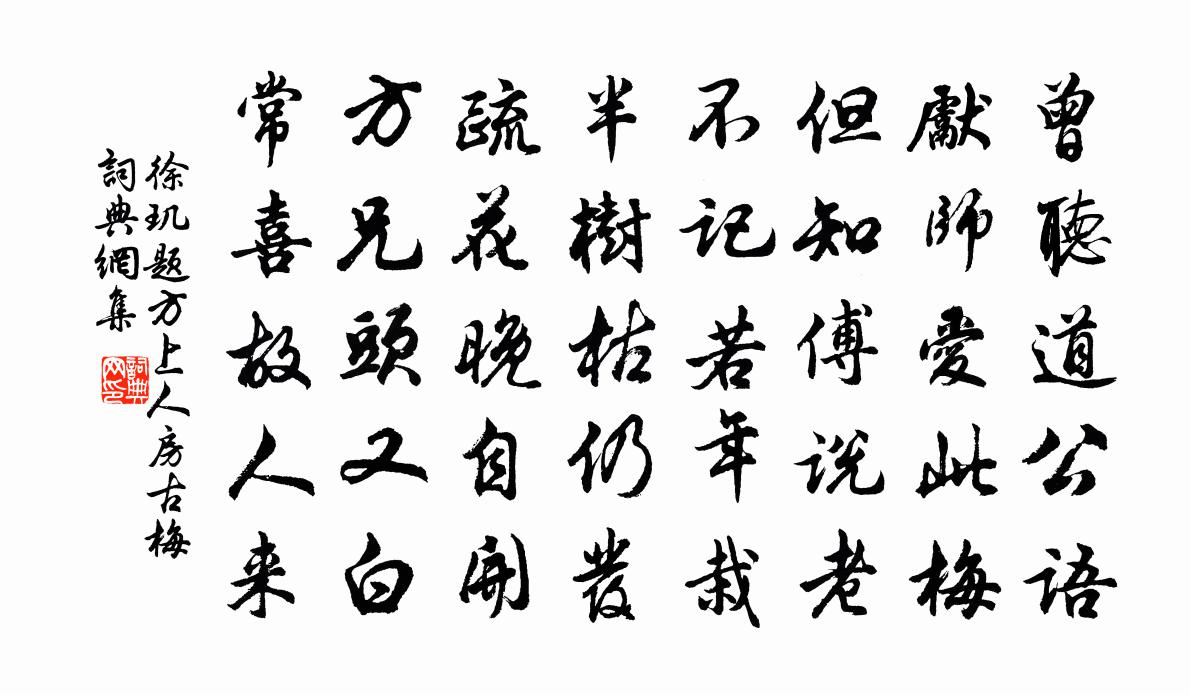 曾聽道公語
獻師愛此梅
但知傅説老
不记若年栽
半樹枯仍發
疏花晚自開
方兄頭又白
常喜故人来
徐玑题方上人房古梅
詞典網集
詞典
网印